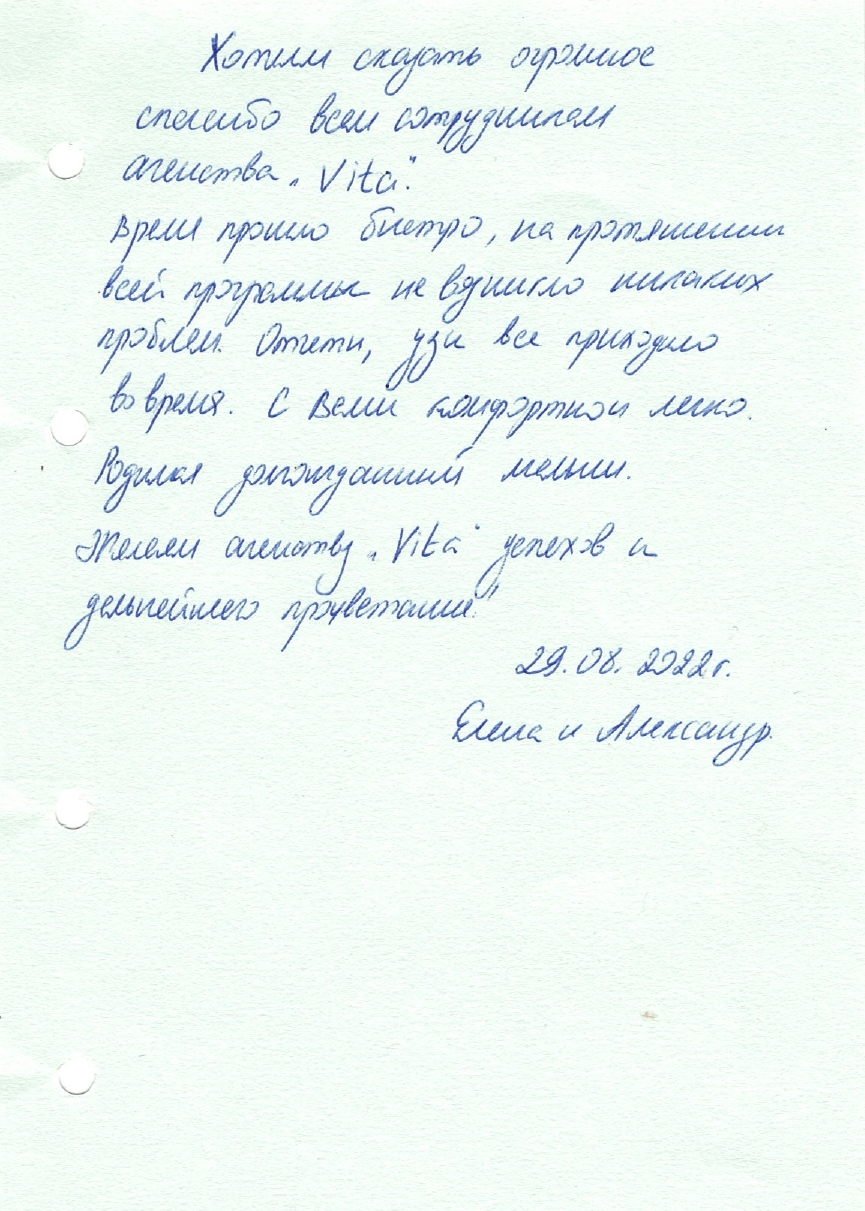 Хотели сказать огромное
спасибо всем сотрудникам
агенства „Vita".
Время прошло быстро, на протяжении
всей программы не возникло никаких
проблем. Отчеты, узи все приходило
во время. С Вами комфортно и легко.
Родился долгожданный малыш.
Желаем агенству „Vita" успехов и
дальнейшего процветания!"
29.08.2022г.
Елена и Александр.